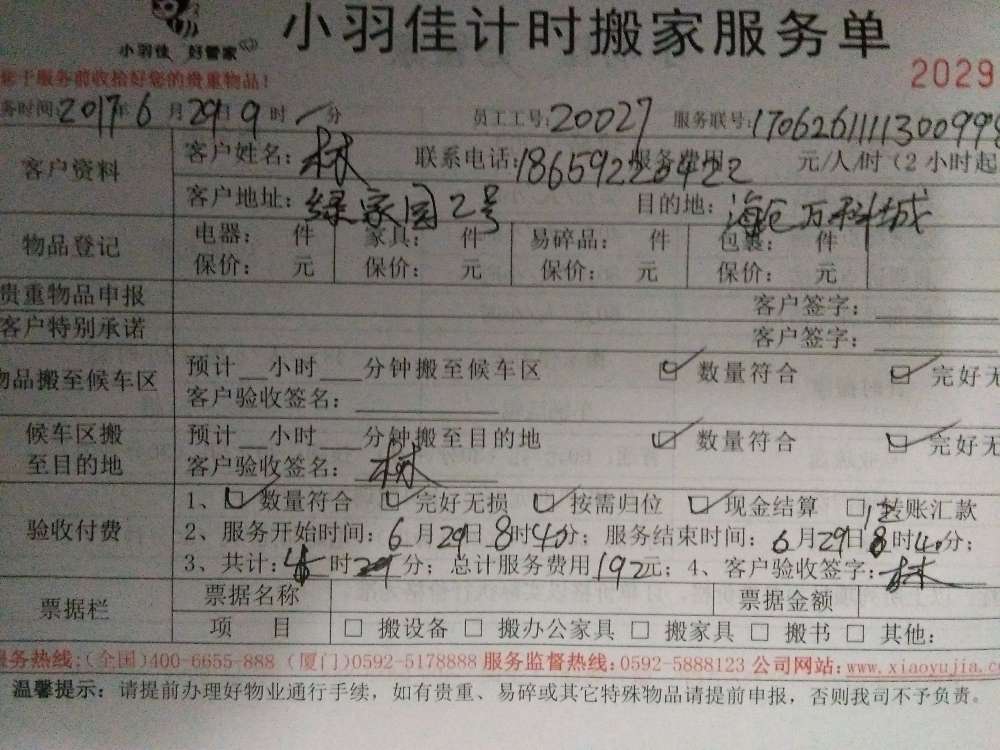 小羽佳 好管家
小羽佳计时搬家服务单
您于服务前收拾好您的贵重物品!
2029
务时间:2017年6月29日9时 分 员工工号:20027 服务联号:170626111130099
客户资料 客户姓名:林 联系电话: 服务费用 元/人/时(2小时起
客户地址:绿家园2号 目的地:海沧万科城
物品登记 电器: 件 家具: 件 易碎品: 件 包裹: 件
保价: 元 保价: 元 保价: 元 保价: 元
贵重物品申报 客户签字:
客户特别承诺 客户签字:
物品搬至候车区 预计__小时___分钟搬至候车区 ☑ 数量符合 ☑ 完好无
客户验收签名:
候车区搬 预计__小时___分钟搬至目的地 ☑ 数量符合 ☑ 完好无
至目的地 客户验收签名:林
验收付费 1、☑ 数量符合 ☑ 完好无损 ☑ 按需归位 ☑ 现金结算 □ 转账汇款
2、服务开始时间:6月29日8时40分;服务结束时间:6月29日 时40分;
3、共计: 时 分;总计服务费用192元;4、客户验收签字:林
票据栏 票据名称 票据金额
项 目 □ 搬设备 □ 搬办公家具 □ 搬家具 □ 搬书 □ 其他:
服务热线:(全国)400-6655-888 (厦门)0592-5178888 服务监督热线:0592-5888123 公司网站:www.xiaoyujia.c
温馨提示:请提前办理好物业通行手续,如有贵重、易碎或其它特殊物品请提前申报,否则我司不予负责。